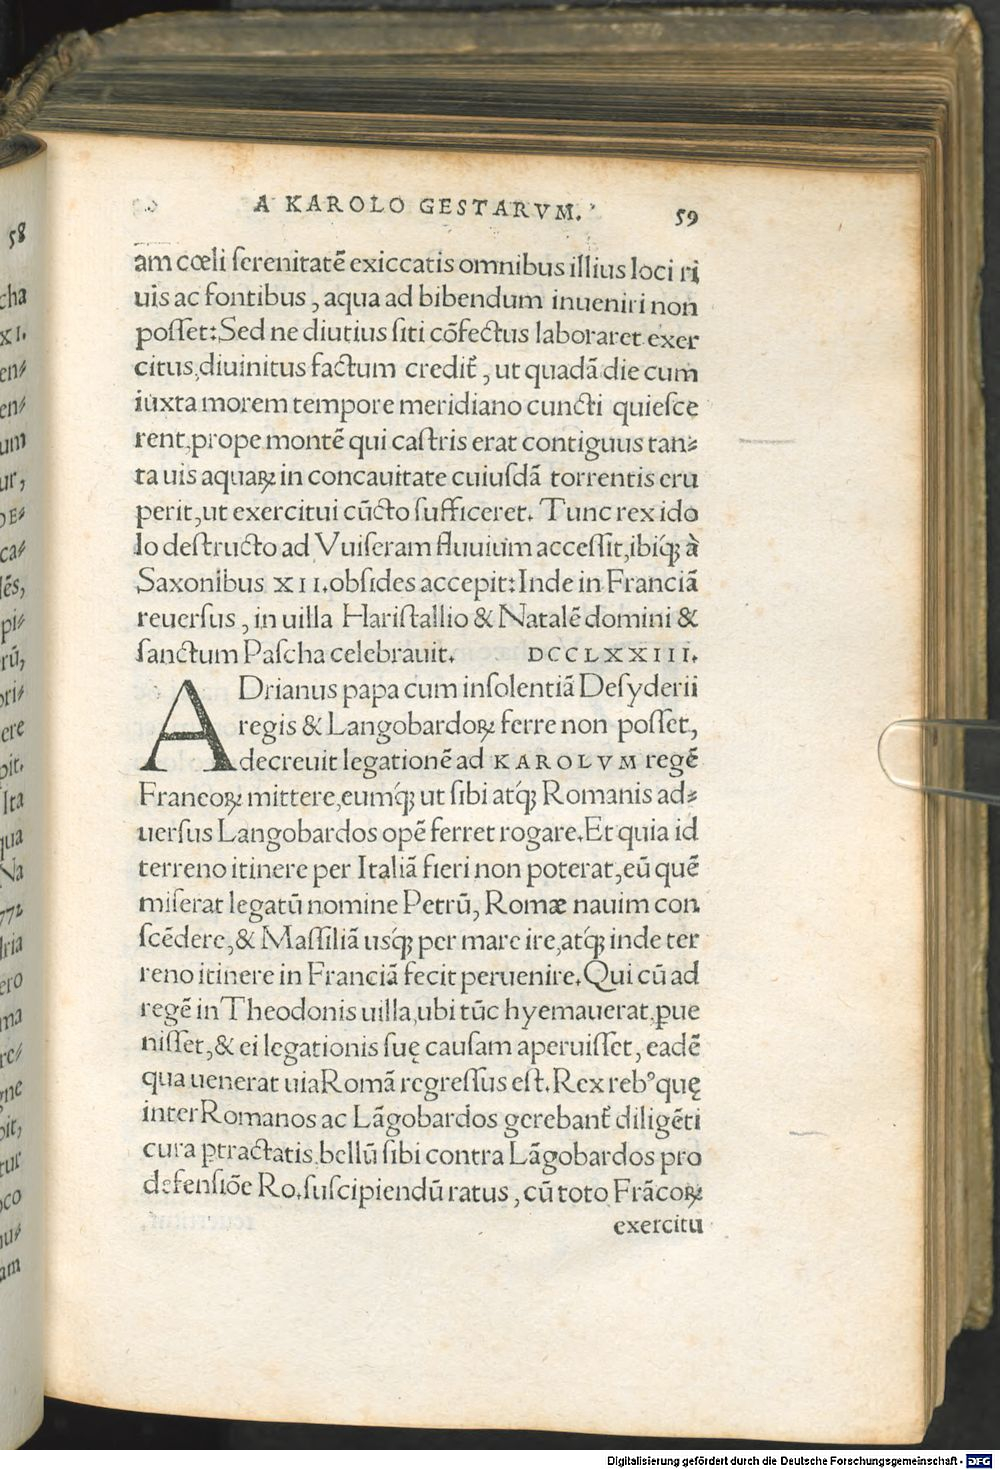 A KAROLO GESTARVM. 59
am cœli ſerenitatē exiccatis omnibus illius loci ri
uis ac fontibus, aqua ad bibendum inueniri non
poſſet: Sed ne diutius ſiti cōfectus laboraret exer
citus, diuinitus factum credit᷑, ut quadā die cum
iuxta morem tempore meridiano cuncti quieſce
rent, prope montē qui caſtris erat contiguus tan⸗
ta uis aquaꝝ in concauitate cuiuſdā torrentis eru
perit, ut exercitui cūcto ſufficeret. Tunc rex ido
lo deſtructo ad Vuiſeram fluuium acceſſit, ibiq́ꝫ à
Saxonibus XII. obſides accepit: Inde in Franciā
reuerſus, in uilla Hariſtallio & Natalē domini &
ſanctum Paſcha celebrauit. DCCLXXIII.
ADrianus papa cum inſolentiā Deſyderii
regis & Langobardoꝝ ferre non poſſet,
decreuit legationē ad KAROLVM regē
Francoꝝ mittere, eumq́ꝫ ut ſibi atq́ꝫ Romanis ad⸗
uerſus Langobardos opē ferret rogare. Et quia id
terreno itinere per Italiā fieri non poterat, eū quē
miſerat legatū nomine Petrū, Romæ nauim con
ſcēdere, & Maſſiliā uſq́ꝫ per mare ire, atq́ꝫ inde ter
reno itinere in Franciā fecit peruenire. Qui cū ad
regē in Theodonis uilla, ubi tūc hyemauerat, ꝑue
niſſet, & ei legationis ſuę cauſam aperuiſſet, eadē
qua uenerat uia Romā regreſſus eſt. Rex reb⁹ quę
inter Romanos ac Lāgobardos gerebant᷑ diligēti
cura ꝑtractatis, bellū ſibi contra Lāgobardos pro
defenſiōe Ro. ſuſcipiendū ratus, cū toto Frācoꝝ
exercitu
58
cha
XI.
en⸗
en⸗
um
ur,
DE⸗
ca⸗
lēs,
pi⸗
rū,
ori⸗
ere
pit.
Ita
qua
Na
772
dria
ero
ma
re⸗
gne
bit,
tur
oco
nu⸗
am
Digitalisierung gefördert durch die Deutsche Forschungsgemeinschaft - DFG